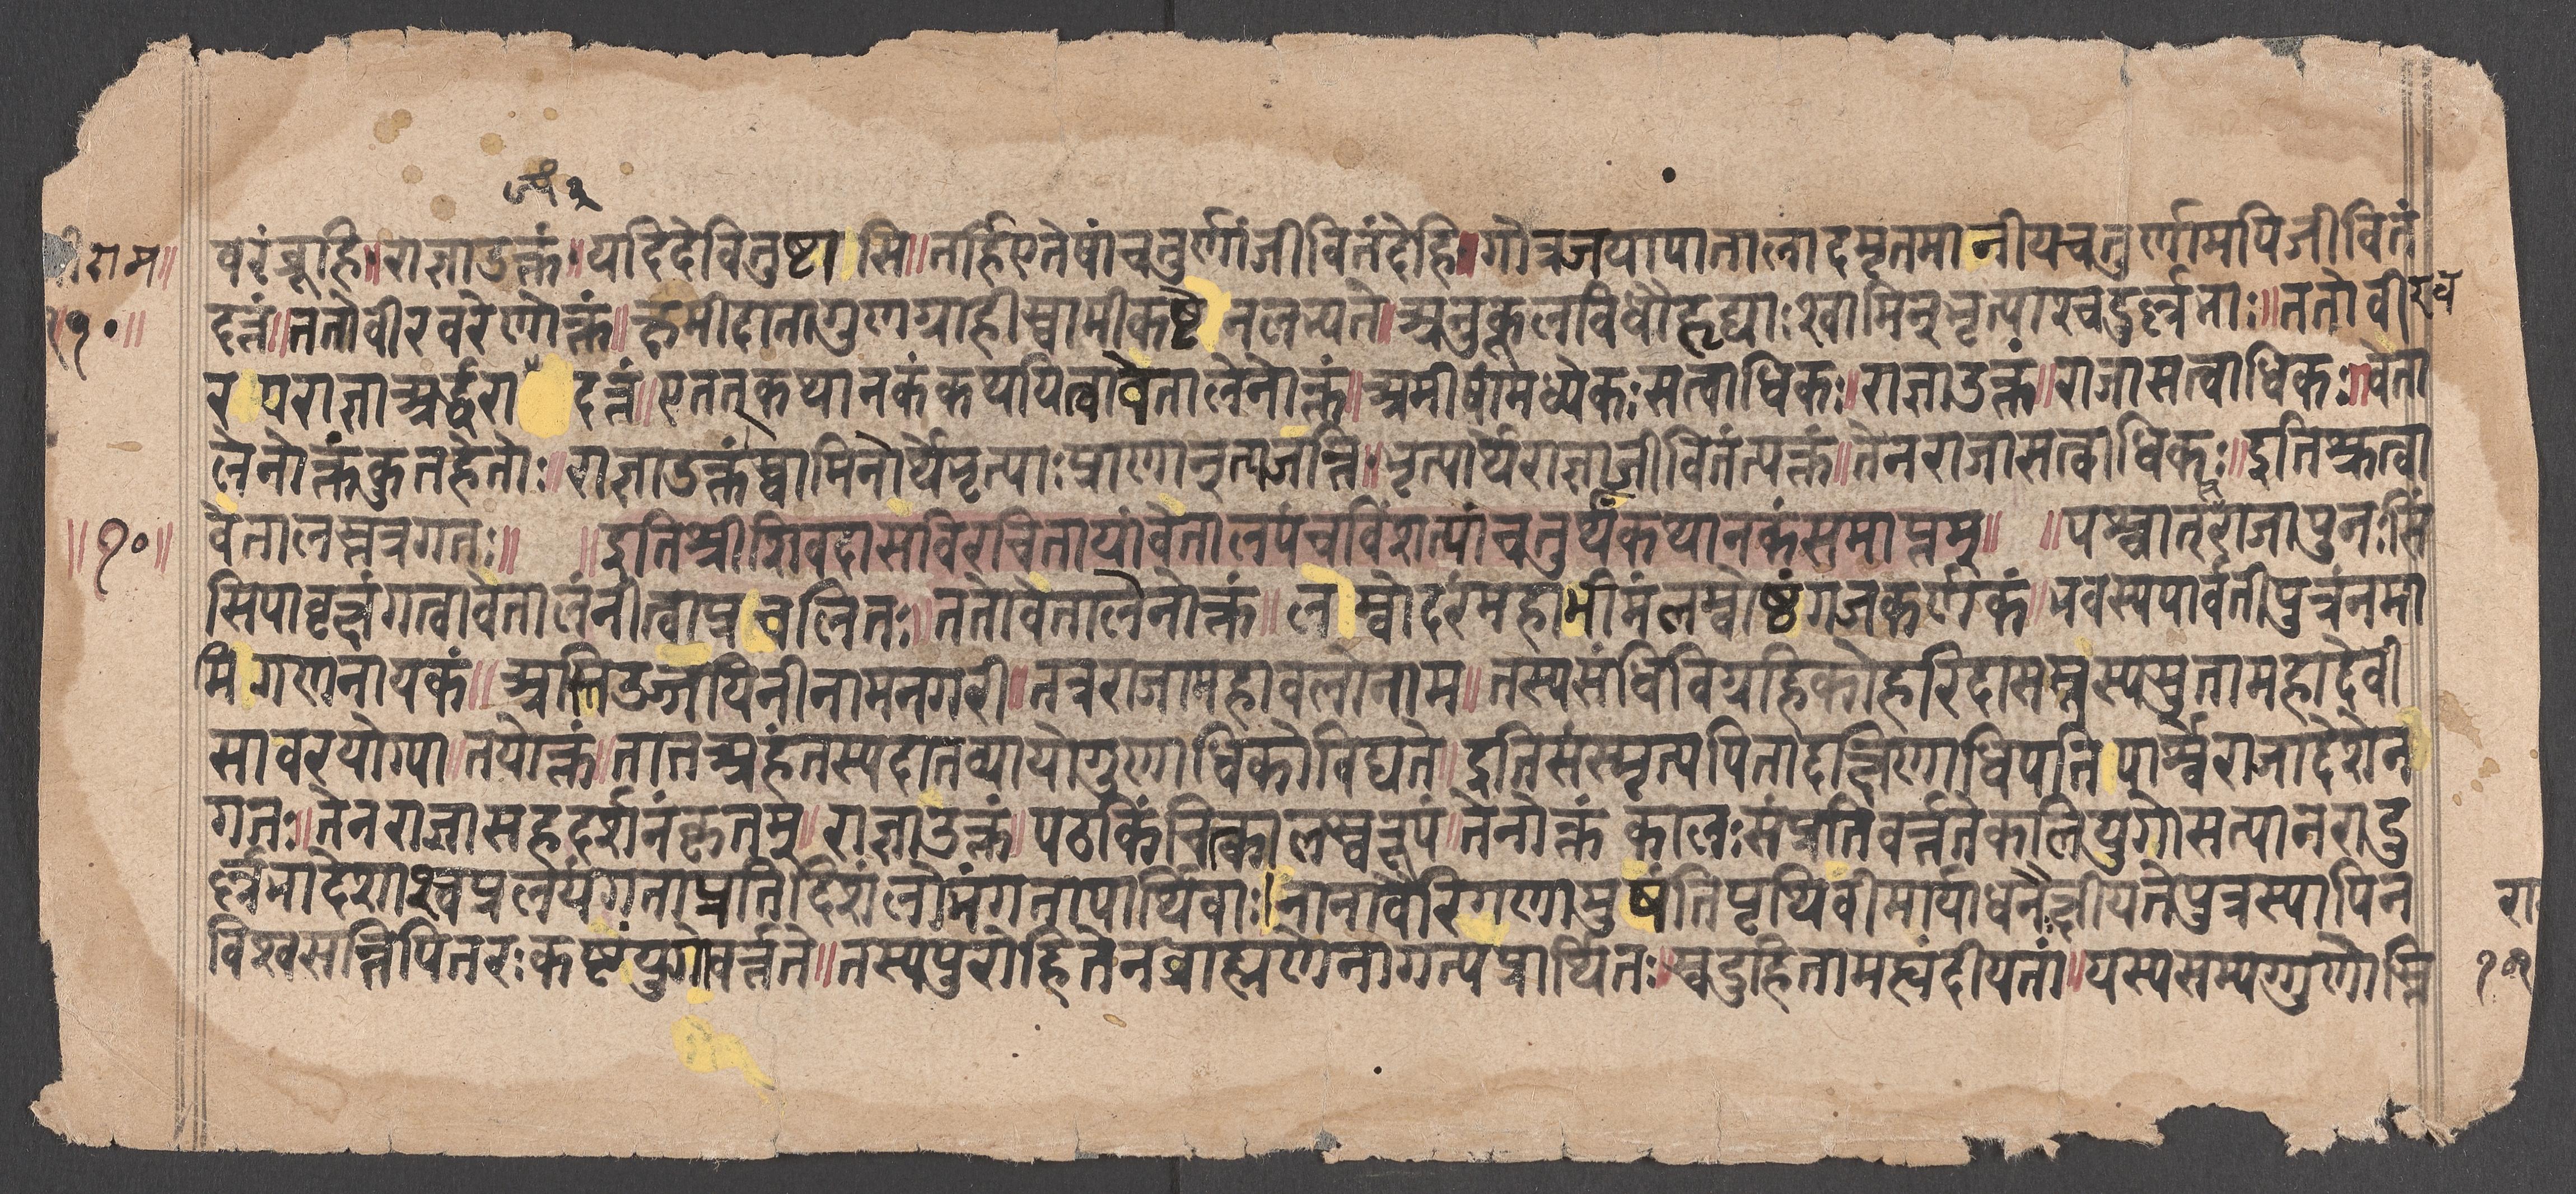 वरंब्रूहि॥राज्ञाउक्तं॥यदिदेवितुष्टासि॥तर्हिएतेषांचतुर्णांजीवितंदेहि॥गोत्रजयापातालादमृतमानीयचतुर्णामपिजीवितं
दत्तं॥ततोवीरवरेणोक्तं॥क्षमीदातागुणग्राहीस्वामीकष्टेनलभ्यते॥अनुकूलविधौहृद्याःस्वामिन्भृत्याश्चदुर्ल्लभाः॥ततोवीरव
रायराज्ञाअर्द्धरा दत्तं॥एतत्कथानकंकथयित्वावेतालेनोक्तं॥अमीषांमध्येकःसत्वाधिकः॥राज्ञाउक्तं॥राजासत्वाधिकः॥वेता
लेनोक्तंकुतहेतोः॥राज्ञाउक्तंस्वामिनोर्थेभृत्याःप्राणान्त्यजन्ति॥भृत्यार्थेराज्ञाजीवितंत्यक्तं॥तेनराजासत्वाधिकः॥इतिश्रुत्वा
वेतालस्तत्रगतः॥ ॥इतिश्रीशिवदासविरचितायांवेतालपंचविंशत्यांचतुर्थंकथानकंसमाप्तम्॥ ॥पश्चात्राजापुनःसिं
सिपावृक्षंगत्वावेतालंनीत्वाप्रचलितः॥ततोवेतालेनोक्तं॥लम्बोदरंमहाभीमंलम्बोष्ठंगजकर्णकं॥भवस्यपार्वतीपुत्रंनमा
मिगणनायकं॥अस्तिउज्जयिनीनामनगरी॥तत्रराजामहाबलोनाम॥तस्यसंधिविग्रहिकोहरिदासस्तस्यसुतामहादेवी
सावरयोग्या॥तयोक्तं॥तातअहंतस्यदातव्यायोगुणाधिकोविद्यते॥इतिसंस्मृत्यपितादक्षिणाधिपतिपार्श्वेराजादेशेन
गतः॥तेनराज्ञासहदर्शनंकृतम्॥राज्ञाउक्तं॥पठकिंचित्कालस्वरूपं॥तेनोक्तं कालःसंप्रतिवर्त्ततेकलियुगोसत्यानरादु
र्ल्लभादेशाश्चप्रलयंगताप्रतिदिशंलोभंगतापार्थिवाः।नानावैरिगणामुषंतिपृथिवीमार्याधनैःक्षीयतेपुत्रस्यापिन
विश्वसन्तिपितरःकष्टंयुगोवर्त्तते॥तस्यपुरोहितेनब्राह्मणेनागत्यप्रार्थितः॥स्वदुहितामह्यंदीयतां॥यस्यसम्यग्गुणोस्ति
॥१०॥
रा
१०१